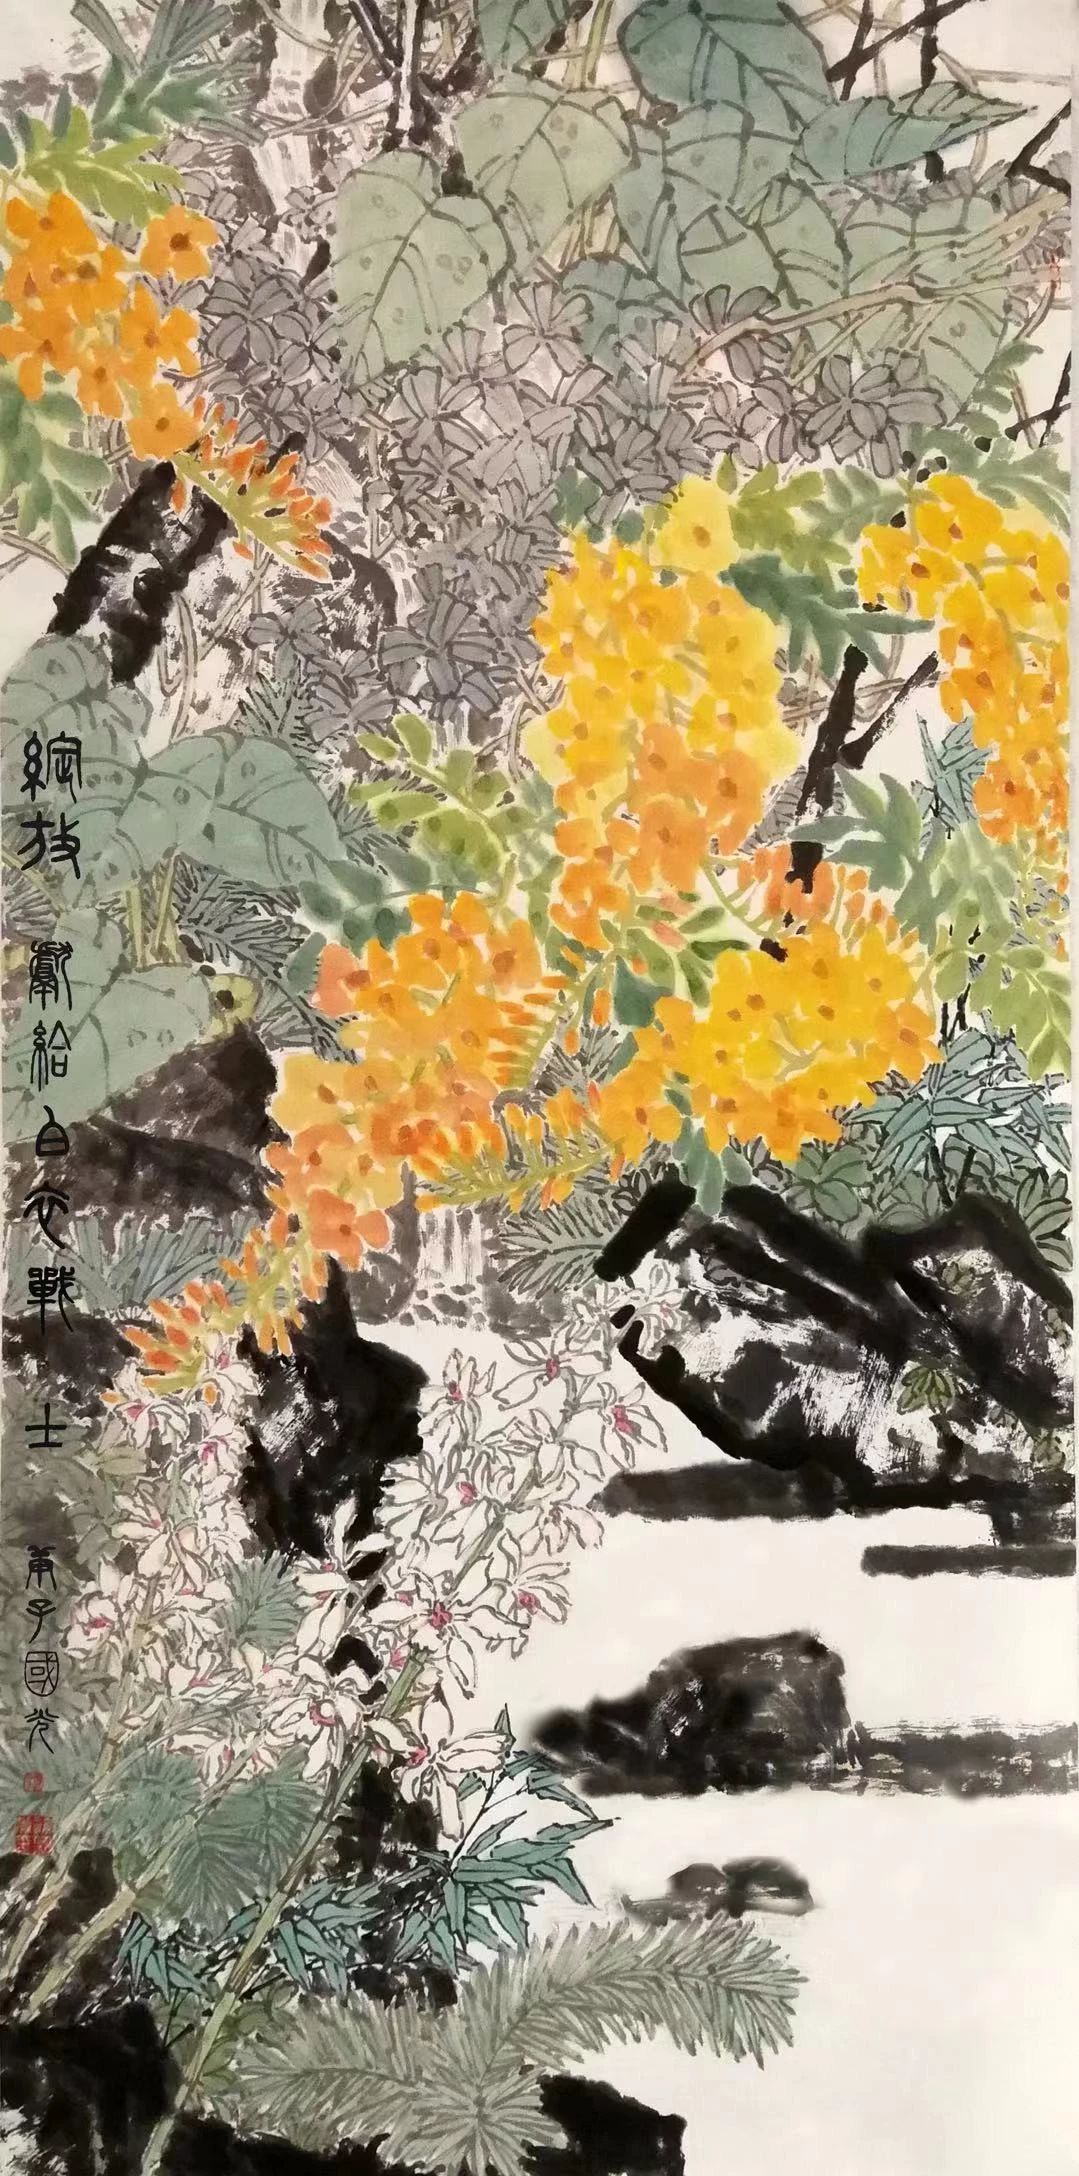 綻放 獻給白衣戰士 庚子國光